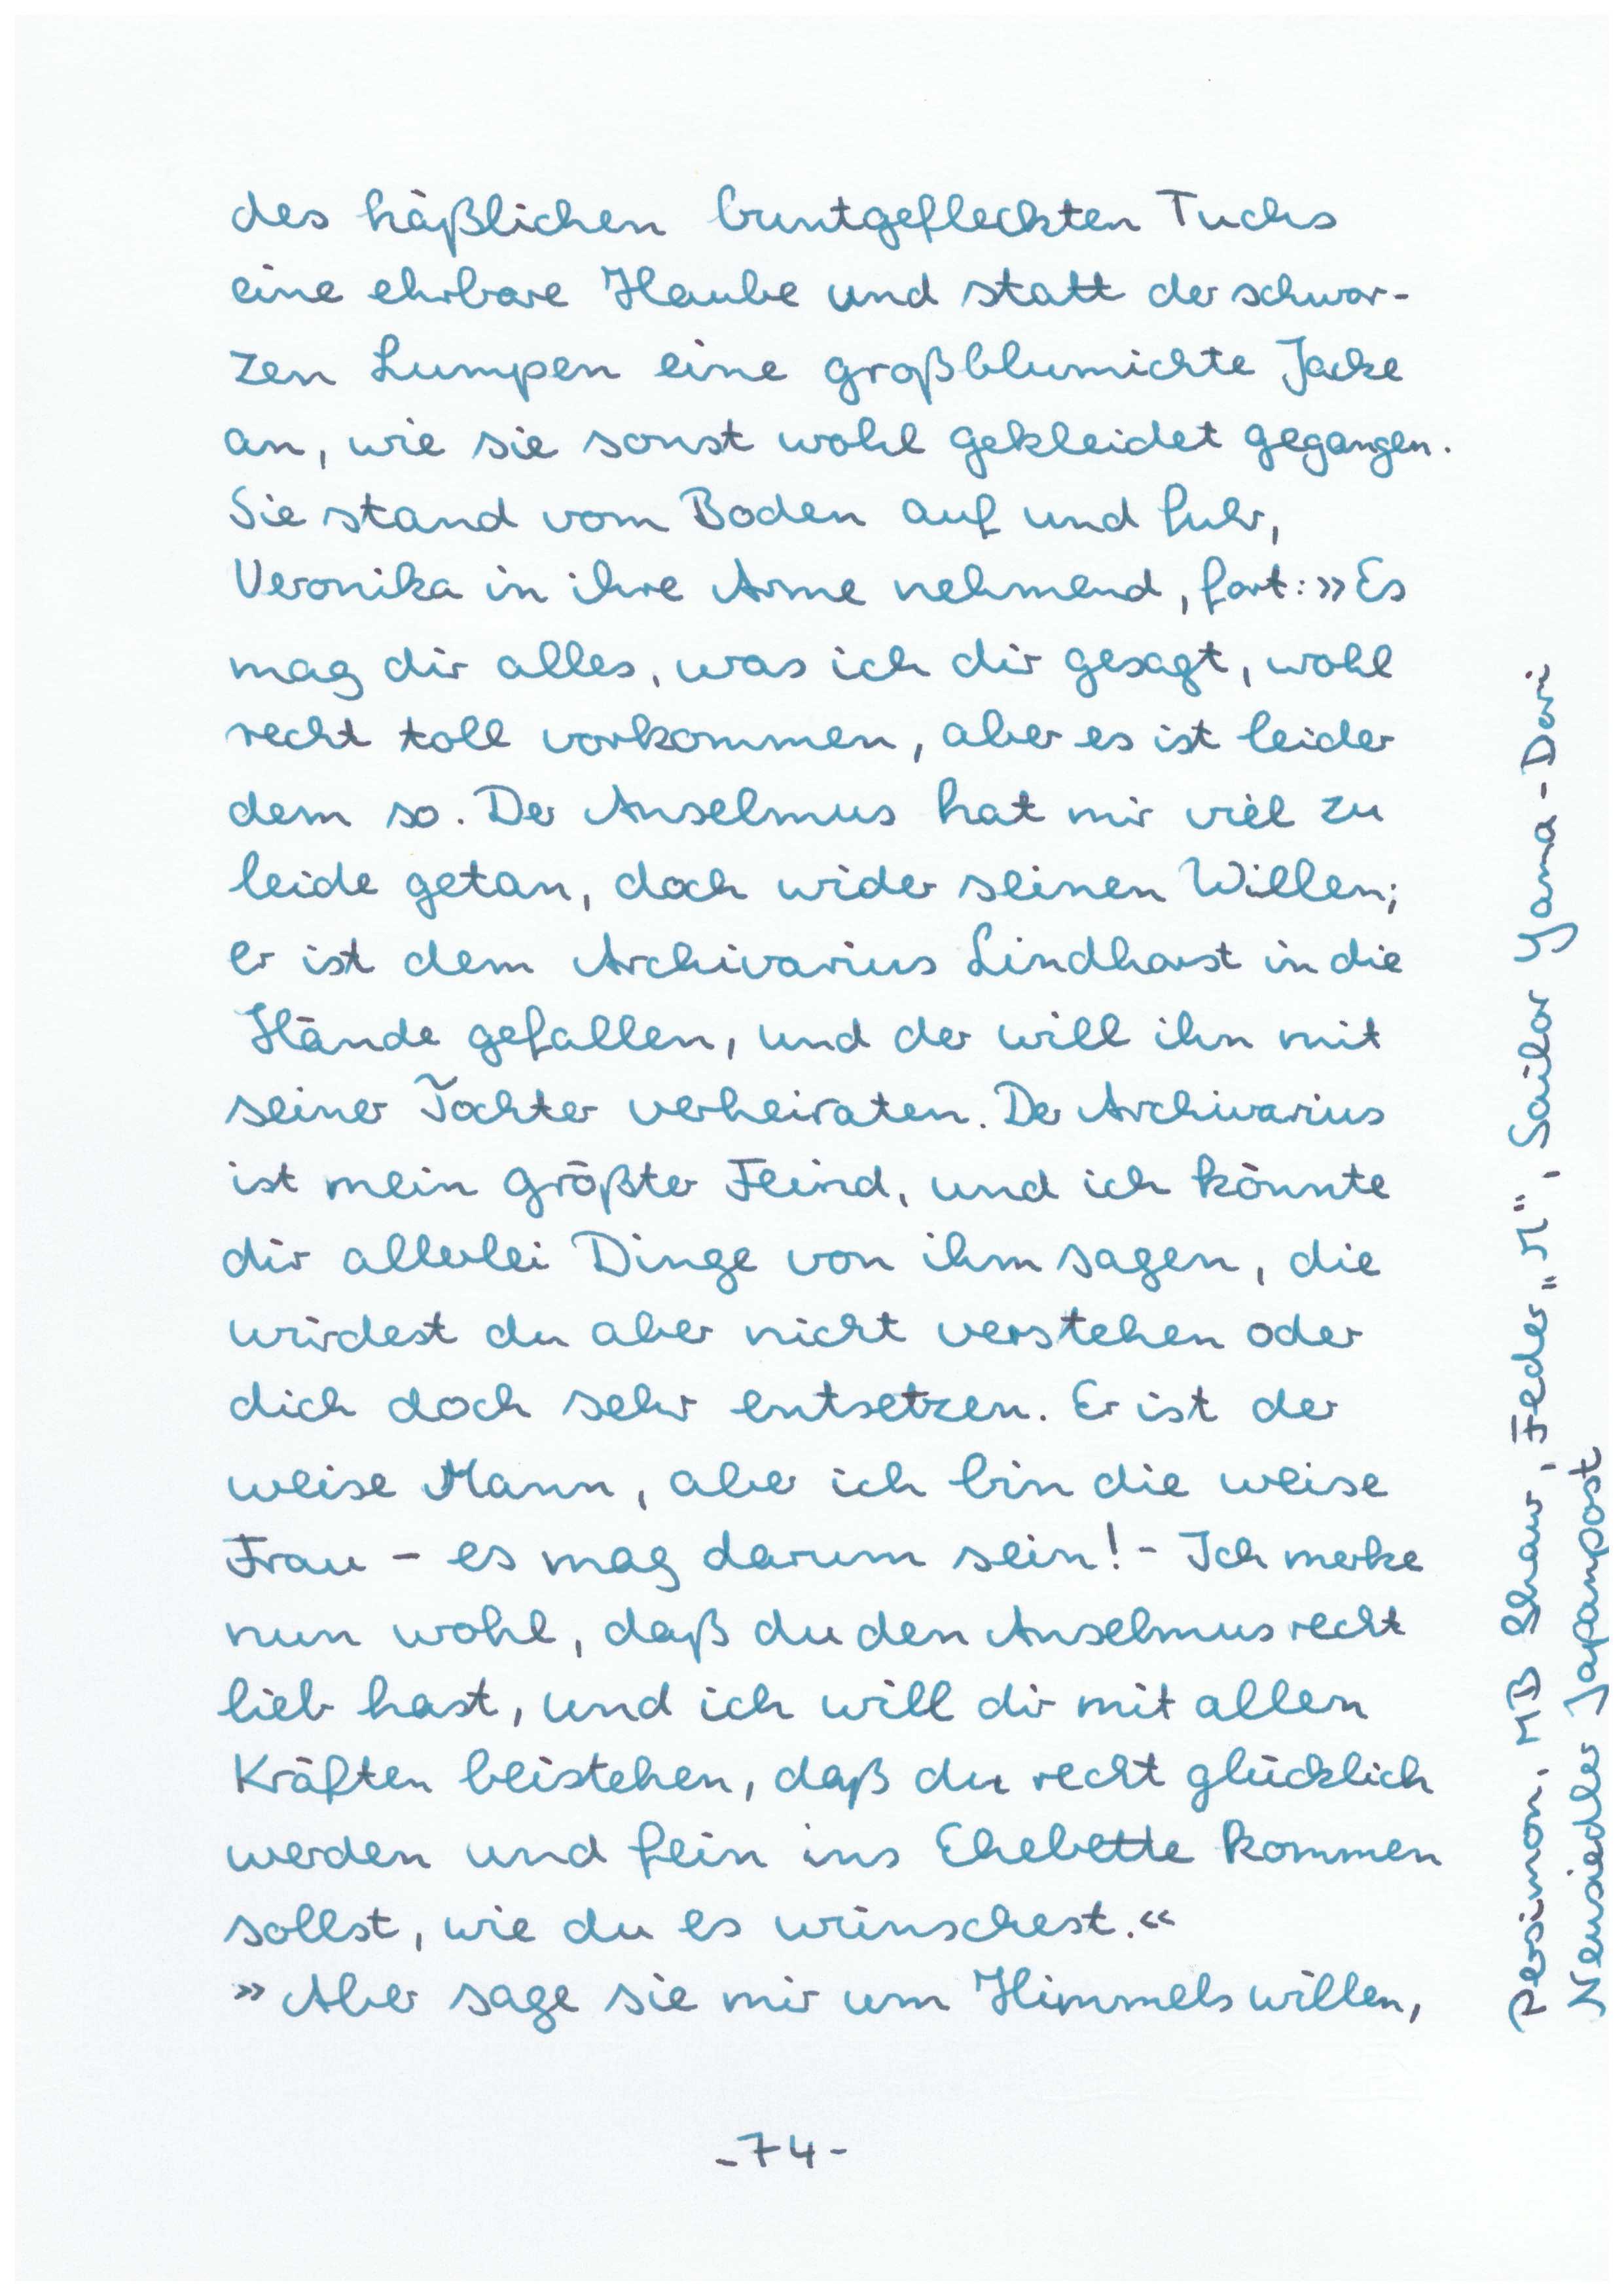 des häßlichen buntgefleckten Tuchs
eine ehrbare Haube und statt der schwar-
zen Lumpen eine großblumichte Jacke
an, wie sie sonst wohl gekleidet gegangen.
Sie stand vom Boden auf und fuhr,
Veronika in ihre Arme nehmend, fort: »Es
mag dir alles, was ich dir gesagt, wohl
recht toll vorkommen, aber es ist leider
dem so. Der Anselmus hat mir viel zu
leide getan, doch wider seinen Willen;
er ist dem Archivarius Lindhorst in die
Hände gefallen, und der will ihn mit
seiner Tochter verheiraten. Der Archivarius
ist mein größter Feind, und ich könnte
dir allerlei Dinge von ihm sagen, die
würdest du aber nicht verstehen oder
dich doch sehr entsetzen. Er ist der
weise Mann, aber ich bin die weise
Frau – es mag darum sein! – Ich merke
nun wohl, daß du den Anselmus recht
lieb hast, und ich will dir mit allen
Kräften beistehen, daß du recht glücklich
werden und fein ins Ehebette kommen
sollst, wie du es wünschest.«
»Aber sage sie mir um Himmels willen,
-74-
Persimon. MB Shaw, Feder „M", Sailor Yama-Dori
Neusiedler Japanpost